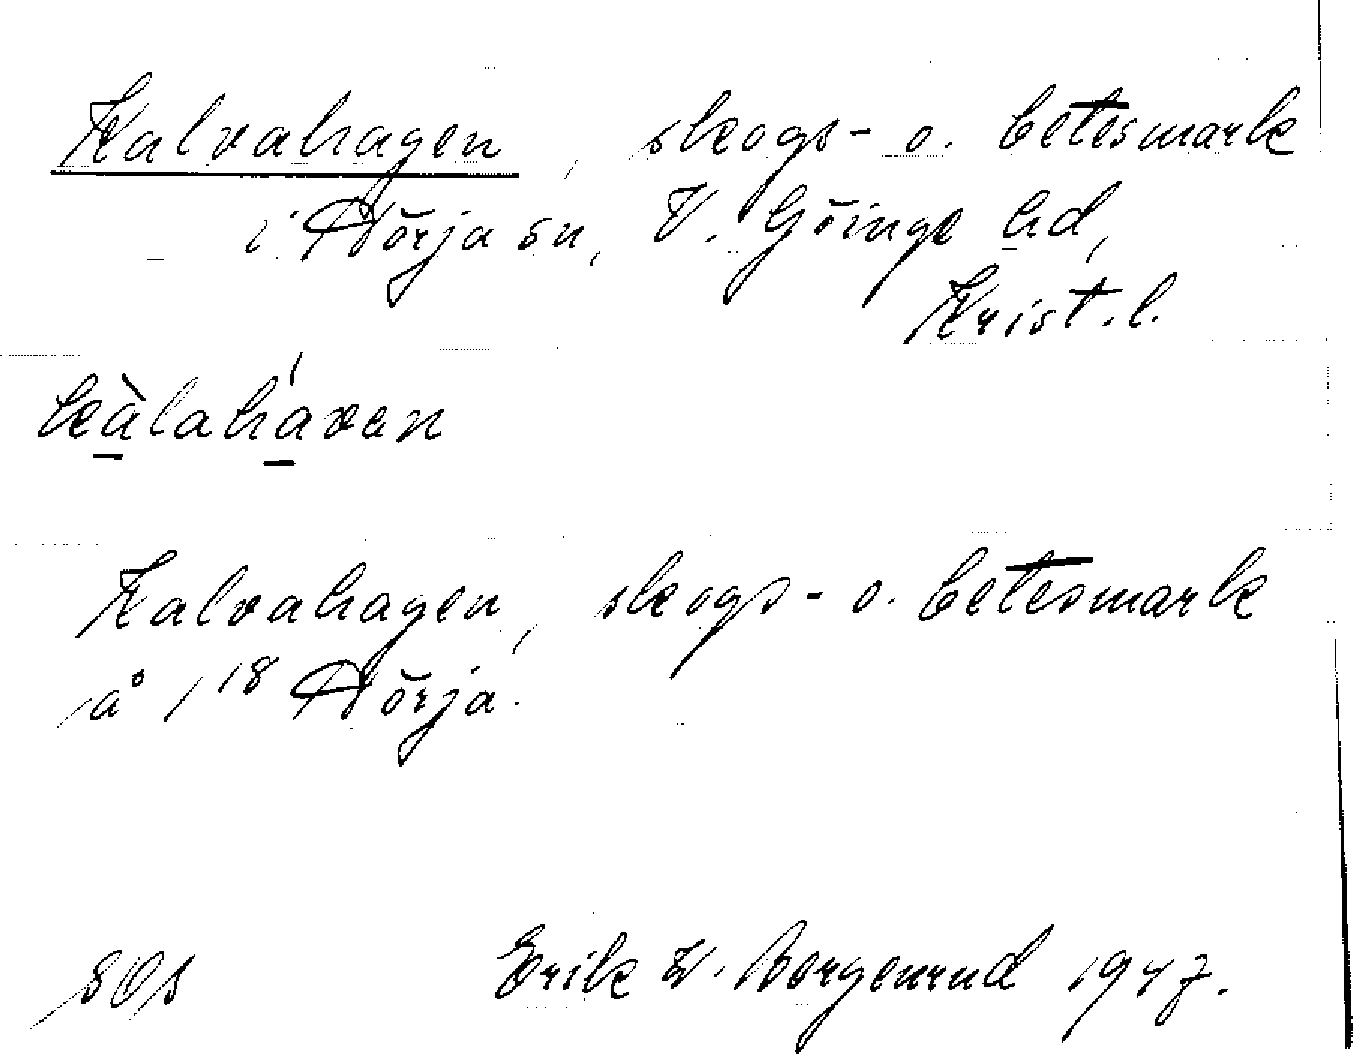 Kalvahagen, skogs- o. betesmark
i Nörja sn, V. Göinge hd,
Krist. l.
kàlahávan
Kalvahagen, skogs- o. betesmark
å 1¹⁸ Nörja.
Erik W. Borgenrud 1947.